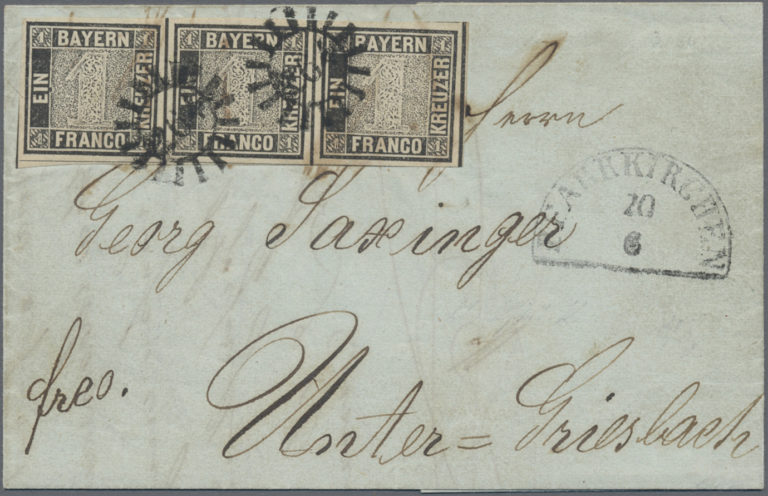 BAYERN
EIN KREUZER
FRANCO
1
BAYERN
EIN KREUZER
FRANCO
1
BAYERN
EIN KREUZER
FRANCO
1
Herrn
Georg Saxinger
PFARRKIRCHEN
20
6
frco.
Unter=Griesbach